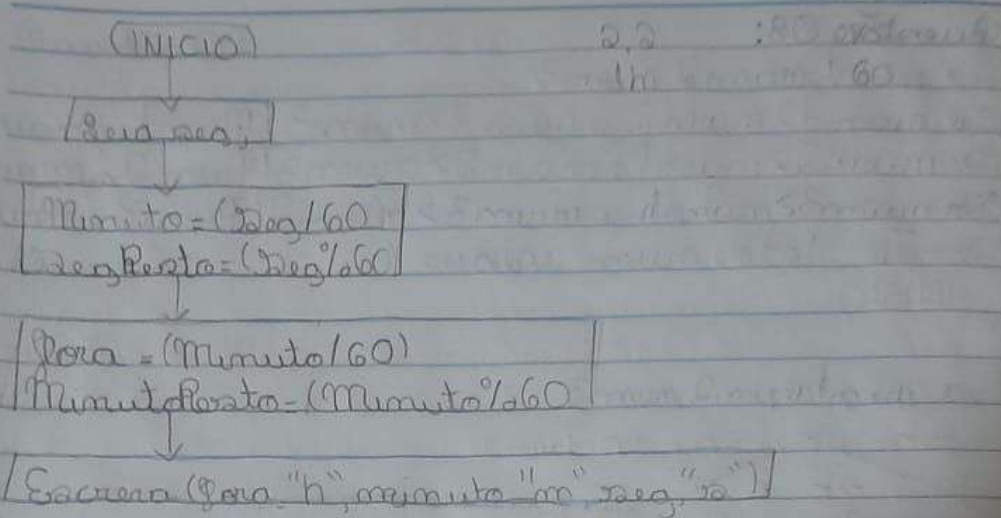 (INICIO)
2,2
1h 60
Leia seg;
Minuto=(Seg/60
SegResto=(Seg%60
Hora = (Minuto/60)
MinutoResto=(Minuto%60
Escreva (Hora "h", minuto "m" seg, "s")